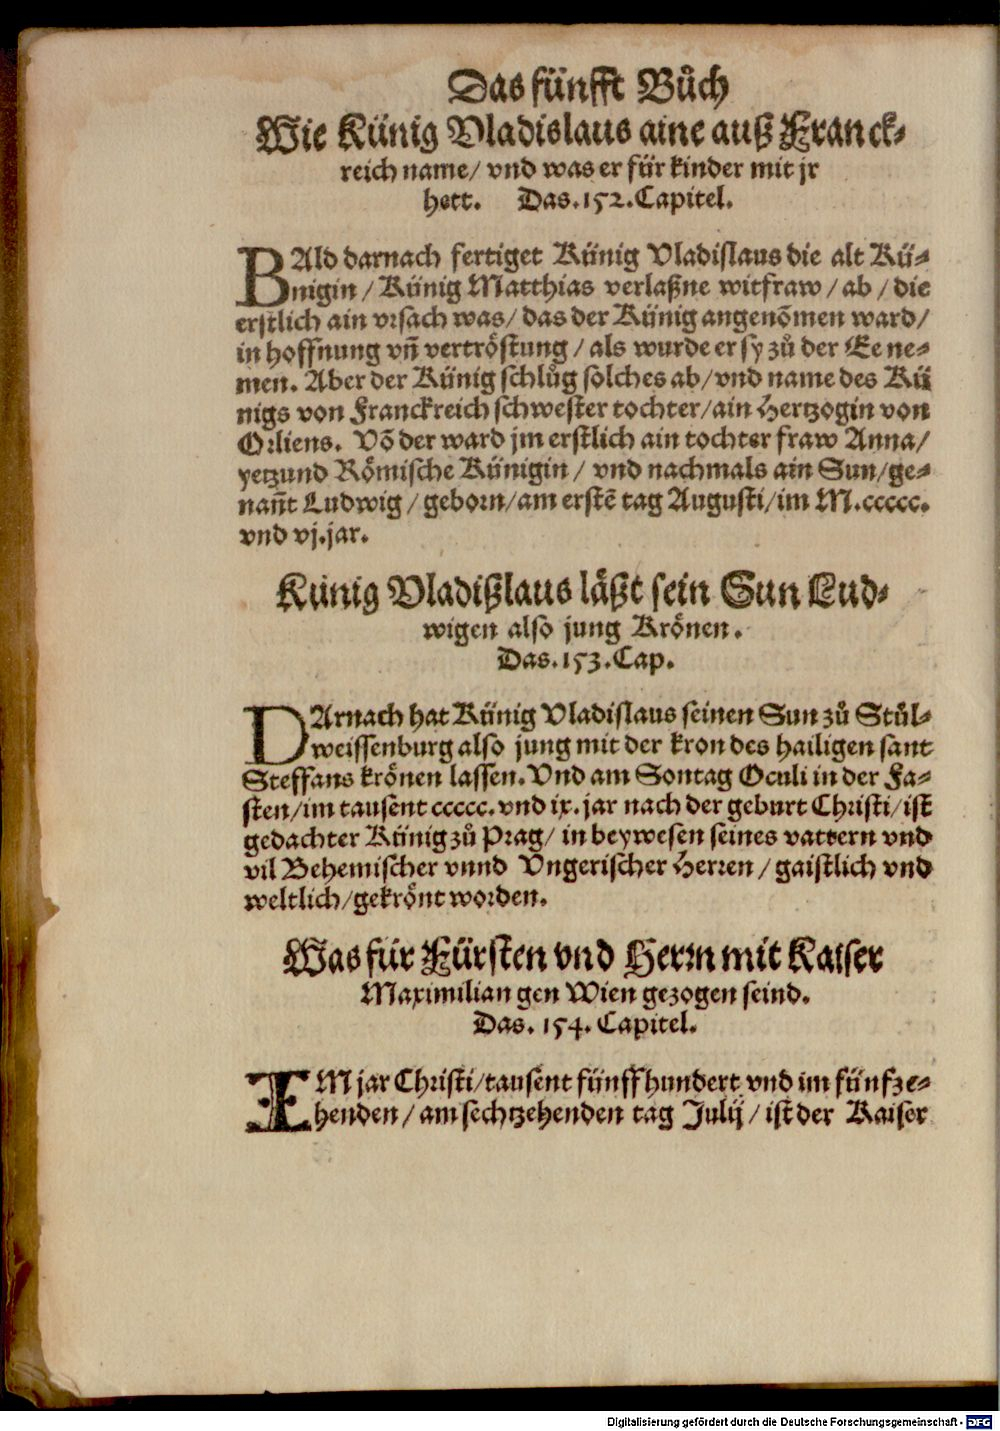 Das fünfft Bůch
Wie Künig Vladislaus aine auß Franck-
reich name/ vnd was er für kinder mit jr
hett. Das .152. Capitel.
BAld darnach fertiget Künig Vladislaus die alt Kü-
nigin / Künig Matthias verlaßne witfraw / ab / die
erstlich ain vrsach was / das der Künig angenõmen ward/
in hoffnung vñ vertröstung / als wurde er sy zů der Ee ne-
men. Aber der Künig schlůg solches ab/ vnd name des Kü
nigs von Franckreich schwester tochter/ ain Hertzogin von
Orliens. Võ der ward jm erstlich ain tochter fraw Anna/
yetzund Römische Künigin / vnd nachmals ain Sun/ ge-
nañt Ludwig / geborn/ am erstẽ tag Augusti/ im M.ccccc.
vnd vj. jar.
Künig Vladißlaus läßt sein Sun Lud-
wigen also jung Krönen.
Das .153. Cap.
DArnach hat Künig Vladislaus seinen Sun zů Stůl-
weissenburg also jung mit der kron des hailigen sant
Steffans krönen lassen. Vnd am Sontag Oculi in der Fa-
sten/ im tausent ccccc. vnd ix. jar nach der geburt Christi/ ist
gedachter Künig zů Prag/ in beywesen seines vattern vnd
vil Behemischer vnnd Vngerischer Herren / gaistlich vnd
weltlich/ gekrönt worden.
Was für Fürsten vnd Herrn mit Kaiser
Maximilian gen Wien gezogen seind.
Das .154. Capitel.
IM jar Christi/ tausent fünffhundert vnd im fünfze-
henden / am sechtzehenden tag Julij / ist der Kaiser
Digitalisierung gefördert durch die Deutsche Forschungsgemeinschaft - DFG